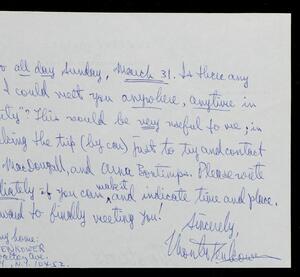 all day Sunday, March 31. Is there any
I could meet you anywhere, anytime in
This would be very useful to me, in
the trip (by car) just to try and contact
MacDougall, and Arna Bontemps. Please write
if you can make it and indicate time and place.
to finally meeting you!
Sincerely,
home:
Ave.
N.Y. 10452